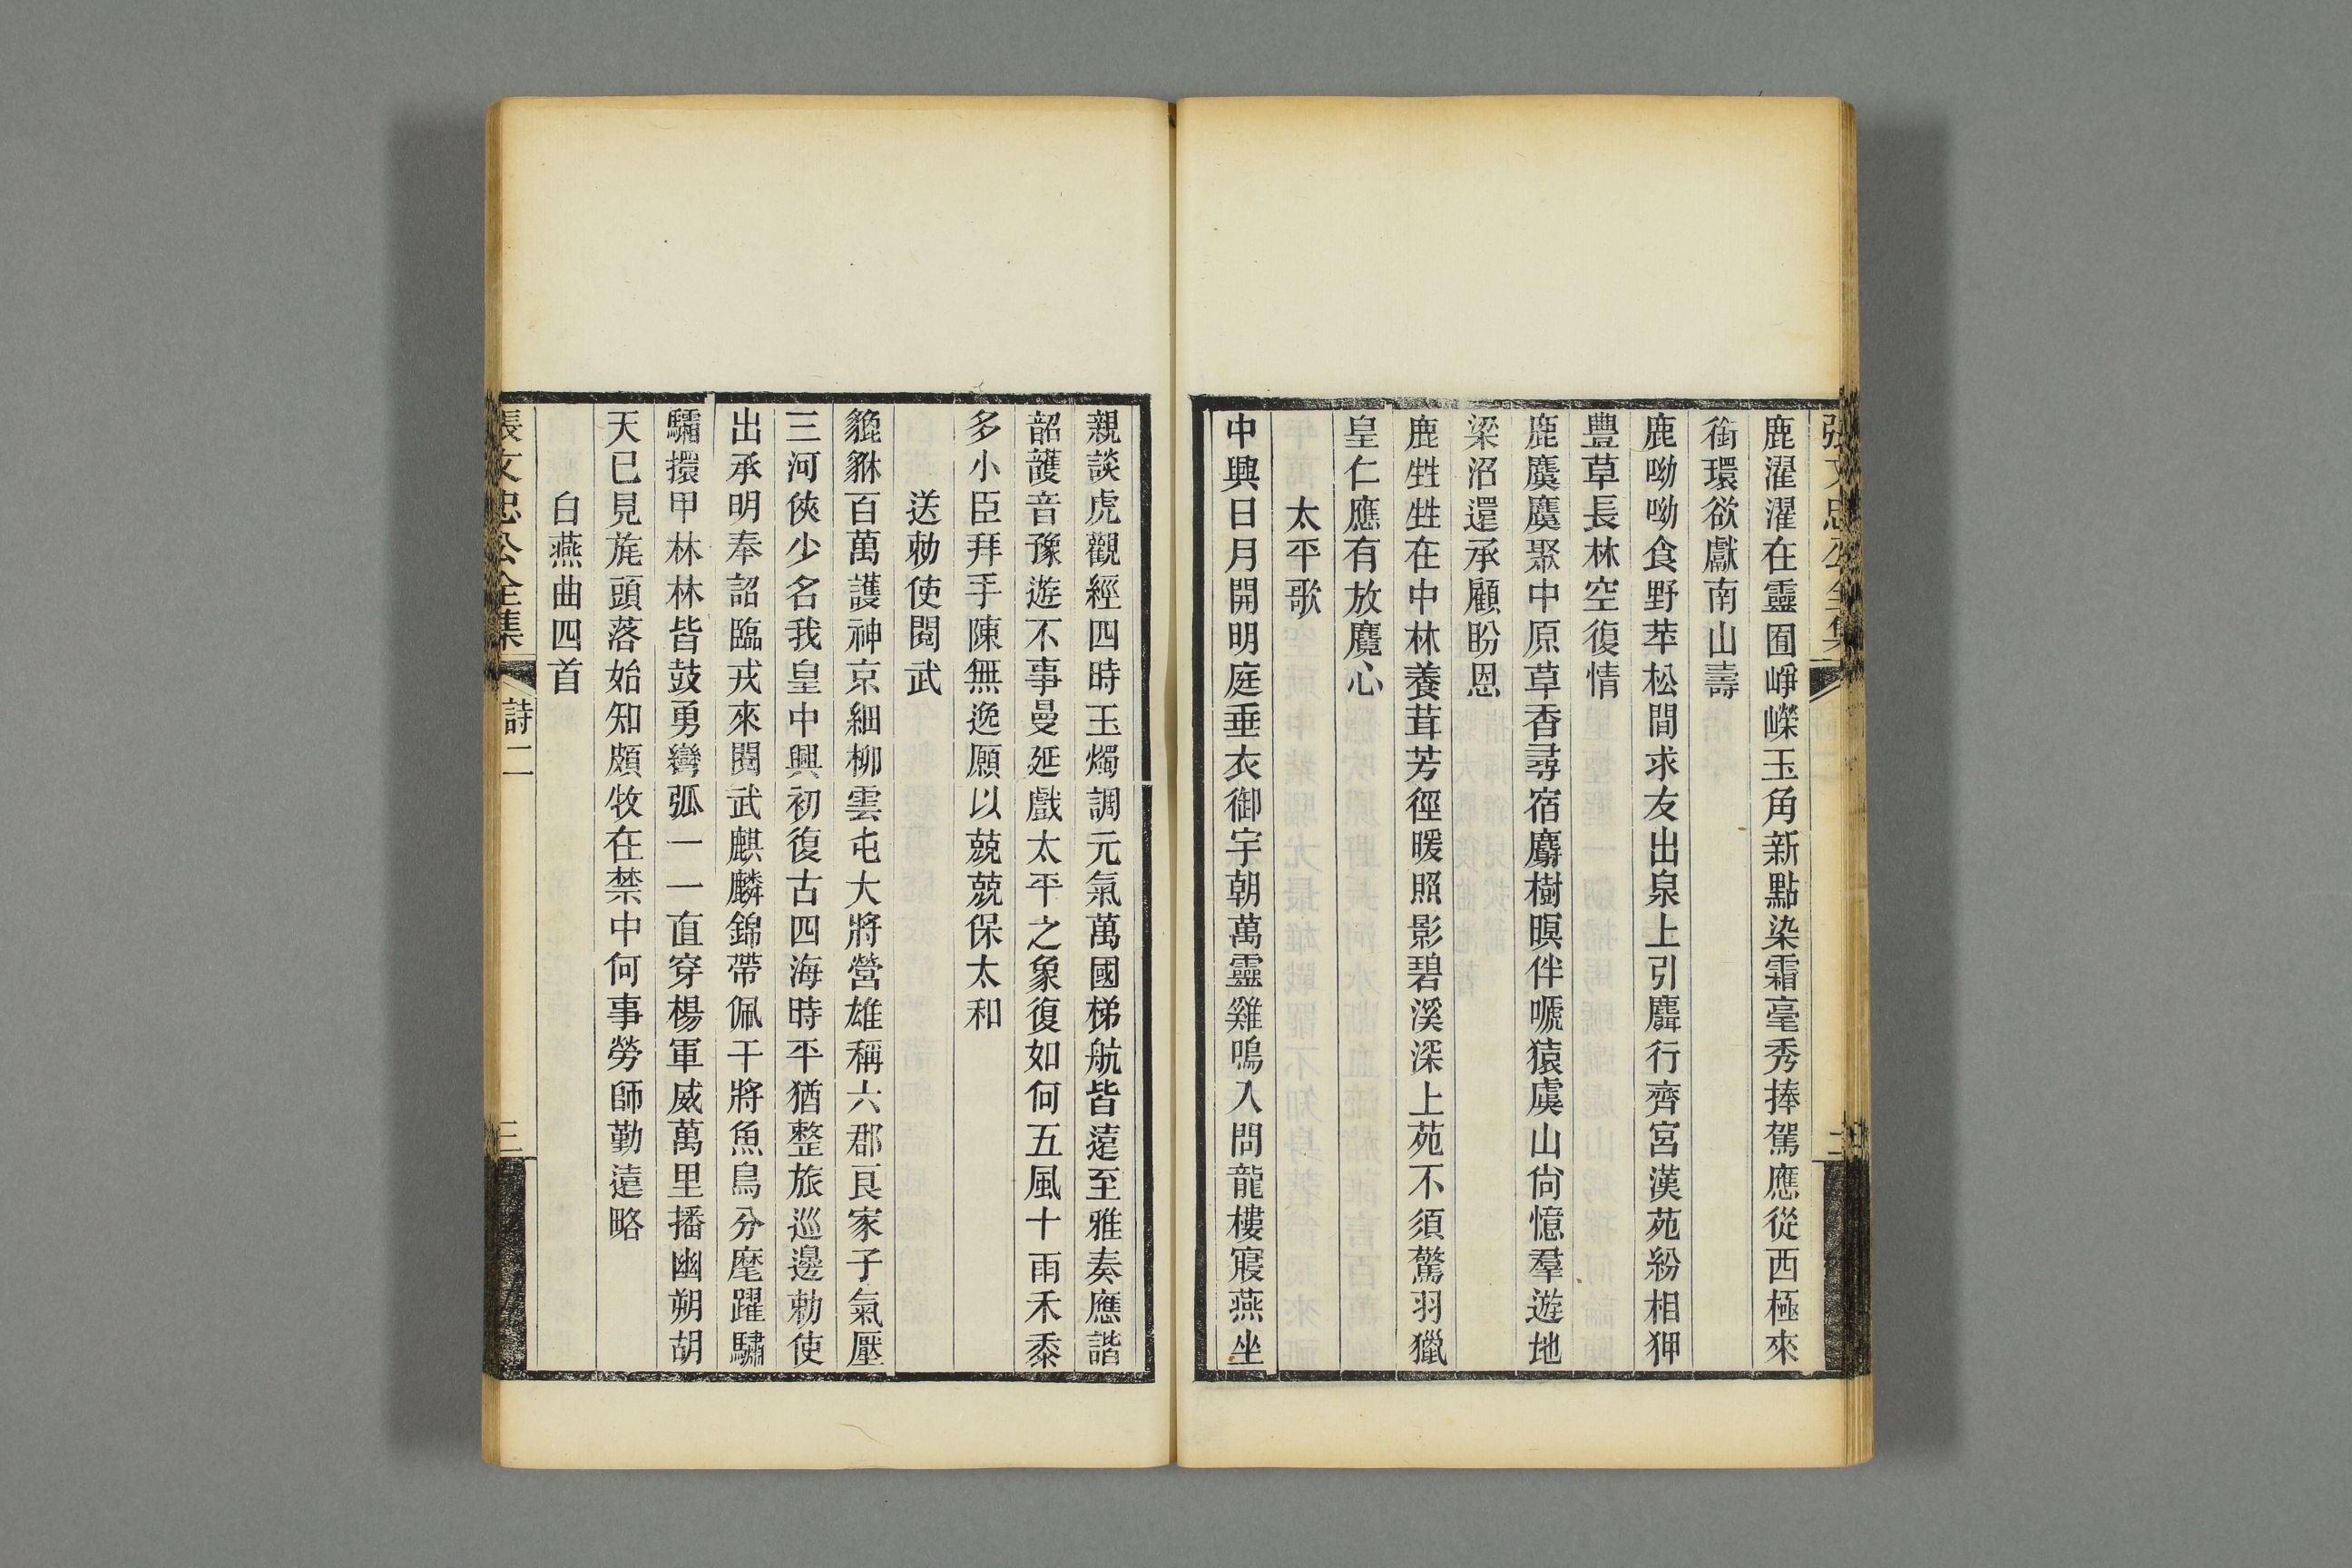 張文忠公全集
鹿濯濯在靈囿崢嶸玉角新點染霜毫秀捧駕應從西極來
銜環欲獻南山壽
鹿呦呦食野苹松間求友出泉上引麛行齊宮漢苑紛相狎
豐草長林空復情
鹿麌麌聚中原草香尋宿麝樹暝伴啼猿虞山尙憶羣遊地
梁沼還承顧盼恩
鹿甡甡在中林養茸芳徑暖照影碧溪深上苑不須驚羽獵
皇仁應有放麑心
太平歌
中興日月開明庭垂衣御宇朝萬靈雞鳴入問龍樓寢燕坐
親談虎觀經四時玉燭調元氣萬國梯航皆遠至雅奏應諧
韶頀音豫遊不事曼延戲太平之象復如何五風十雨禾黍
多小臣拜手陳無逸願以兢兢保太和
送勅使閱武
貔貅百萬護神京細柳雲屯大將營雄稱六郡良家子氣壓
三河俠少名我皇中興初復古四海時平猶整旅巡邊勅使
出承明奉詔臨戎來閱武麒麟錦帶佩干將魚鳥分麾躍驌
驦擐甲林林皆鼓勇彎弧一一直穿楊軍威萬里播幽朔胡
天已見旄頭落始知頗牧在禁中何事勞師勤遠略
白燕曲四首
張文忠公全集
詩二
三